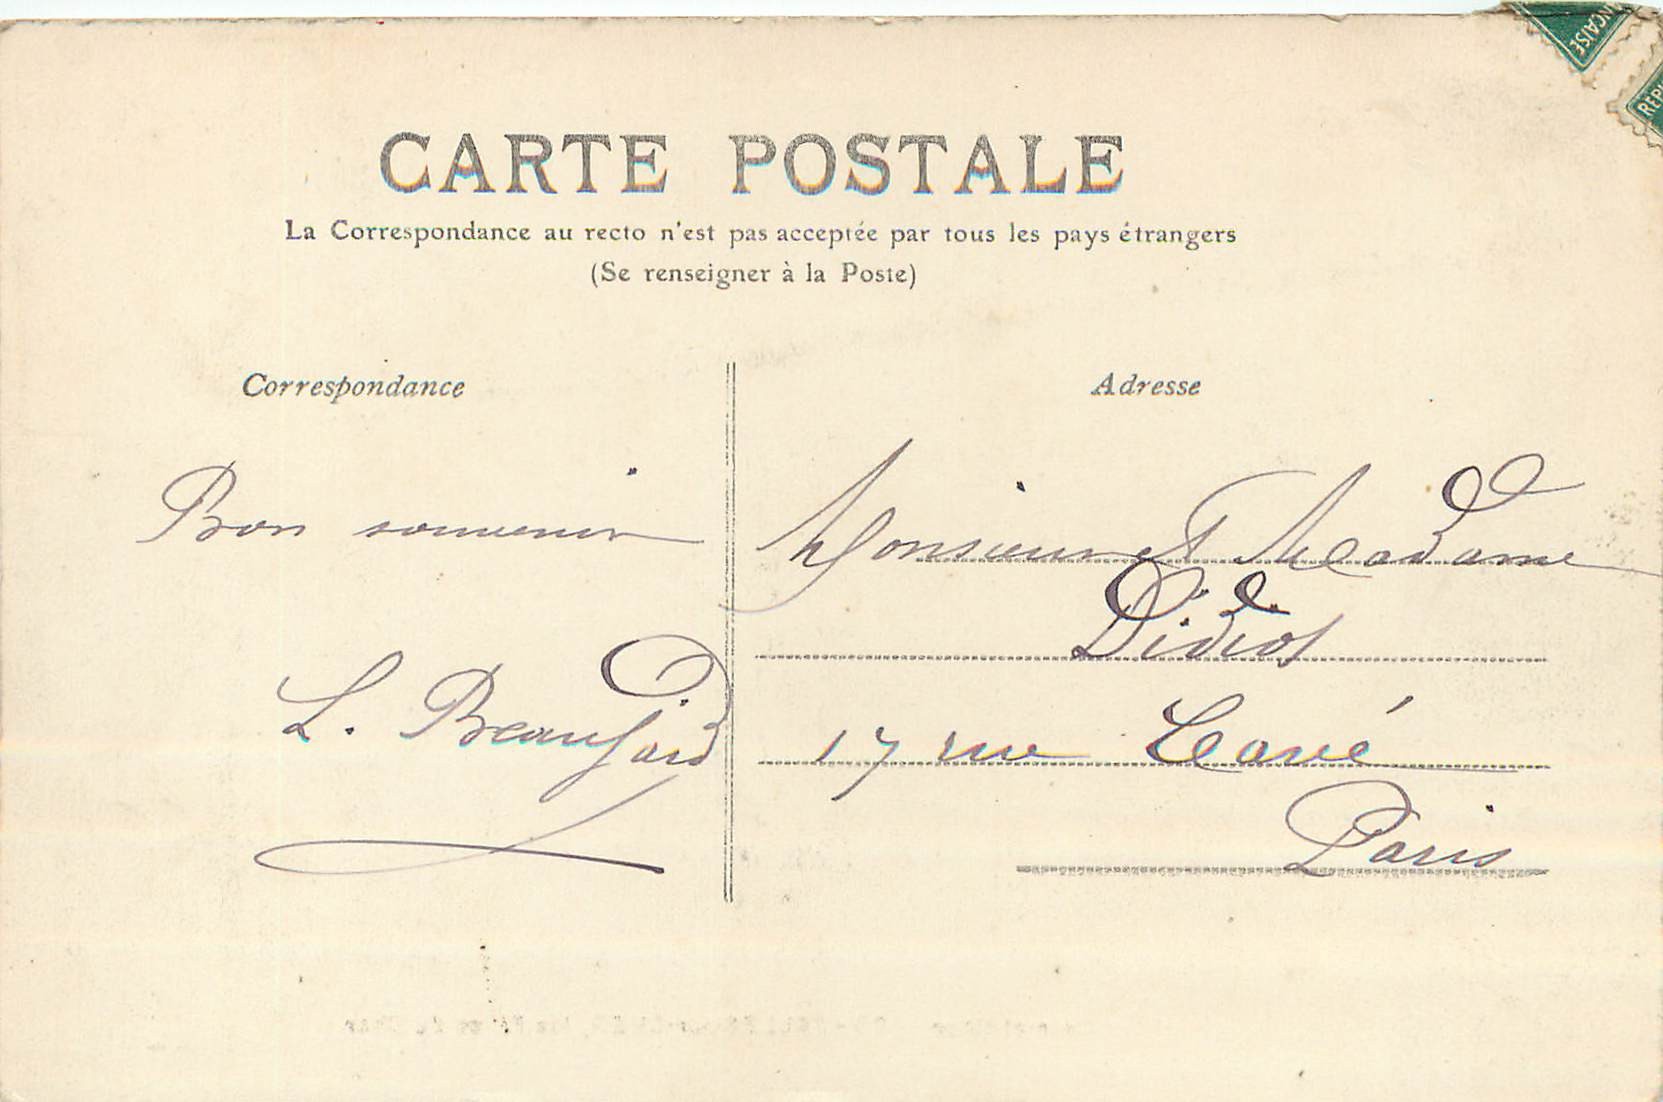 ÇAISE
RÉPU
CARTE POSTALE
La Correspondance au recto n'est pas acceptée par tous les pays étrangers
(Se renseigner à la Poste)
Correspondance
Bon souvenir
L. Beaufard
Adresse
Monsieur et Madame
Didiot
17 rue Cavé
Paris